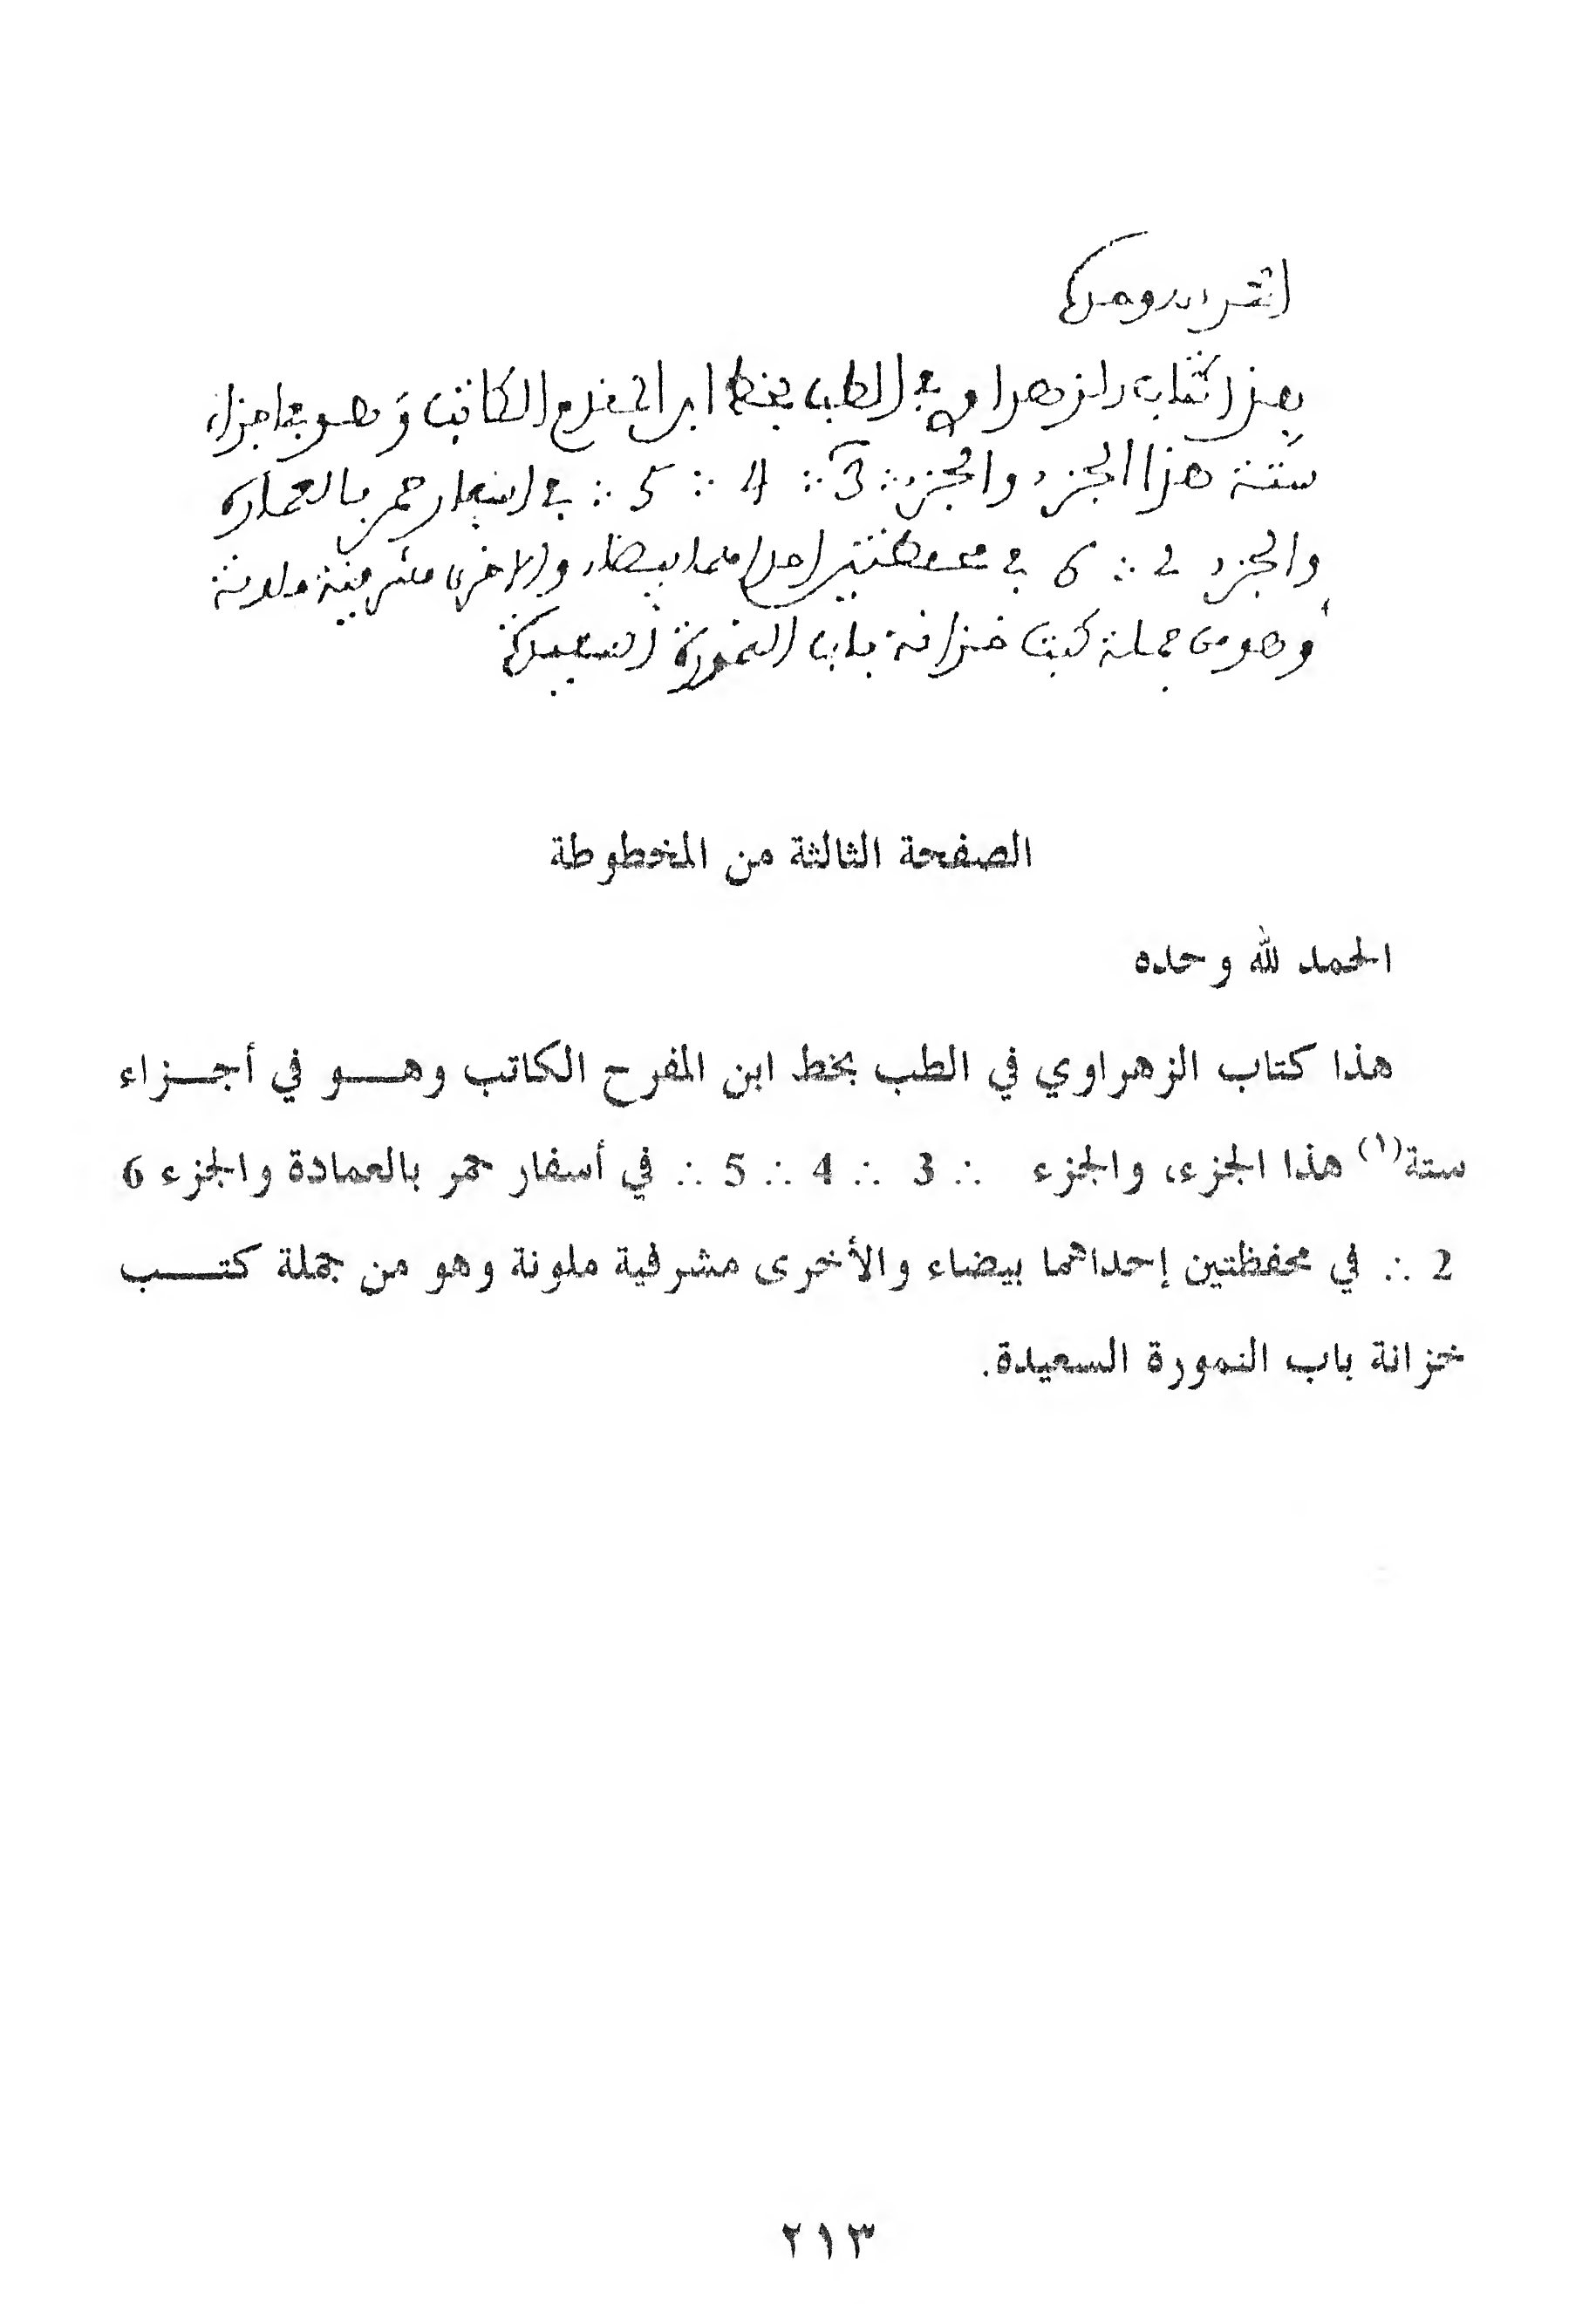 الحمد لله وحده
هذا كتاب الزهراوي في الطب بخط ابن المفرح الكاتب وهو في اجزاء
ستة هذا الجزء والجزء ∴ 3 ∴ 4 ∴ 5 ∴ في اسفار حمر بالعمادة
والجزء 2 ∴ 6 في محفظتين احداهما بيضاء والاخرى مشرفية ملونة
وهو من جملة كتب خزانة باب النمورة السعيدة
الصفحة الثالثة من المخطوطة
الحمد لله وحده
هذا كتاب الزهراوي في الطب بخط ابن المفرح الكاتب وهــو في أجــزاء
ستة(١) هذا الجزء، والجزء ∴ 3 ∴ 4 ∴ 5 ∴ في أسفار حمر بالعمادة والجزء 6
2 ∴ في محفظتين إحداهما بيضاء والأخرى مشرفية ملونة وهو من جملة كتــب
خزانة باب النمورة السعيدة.
٢١٣